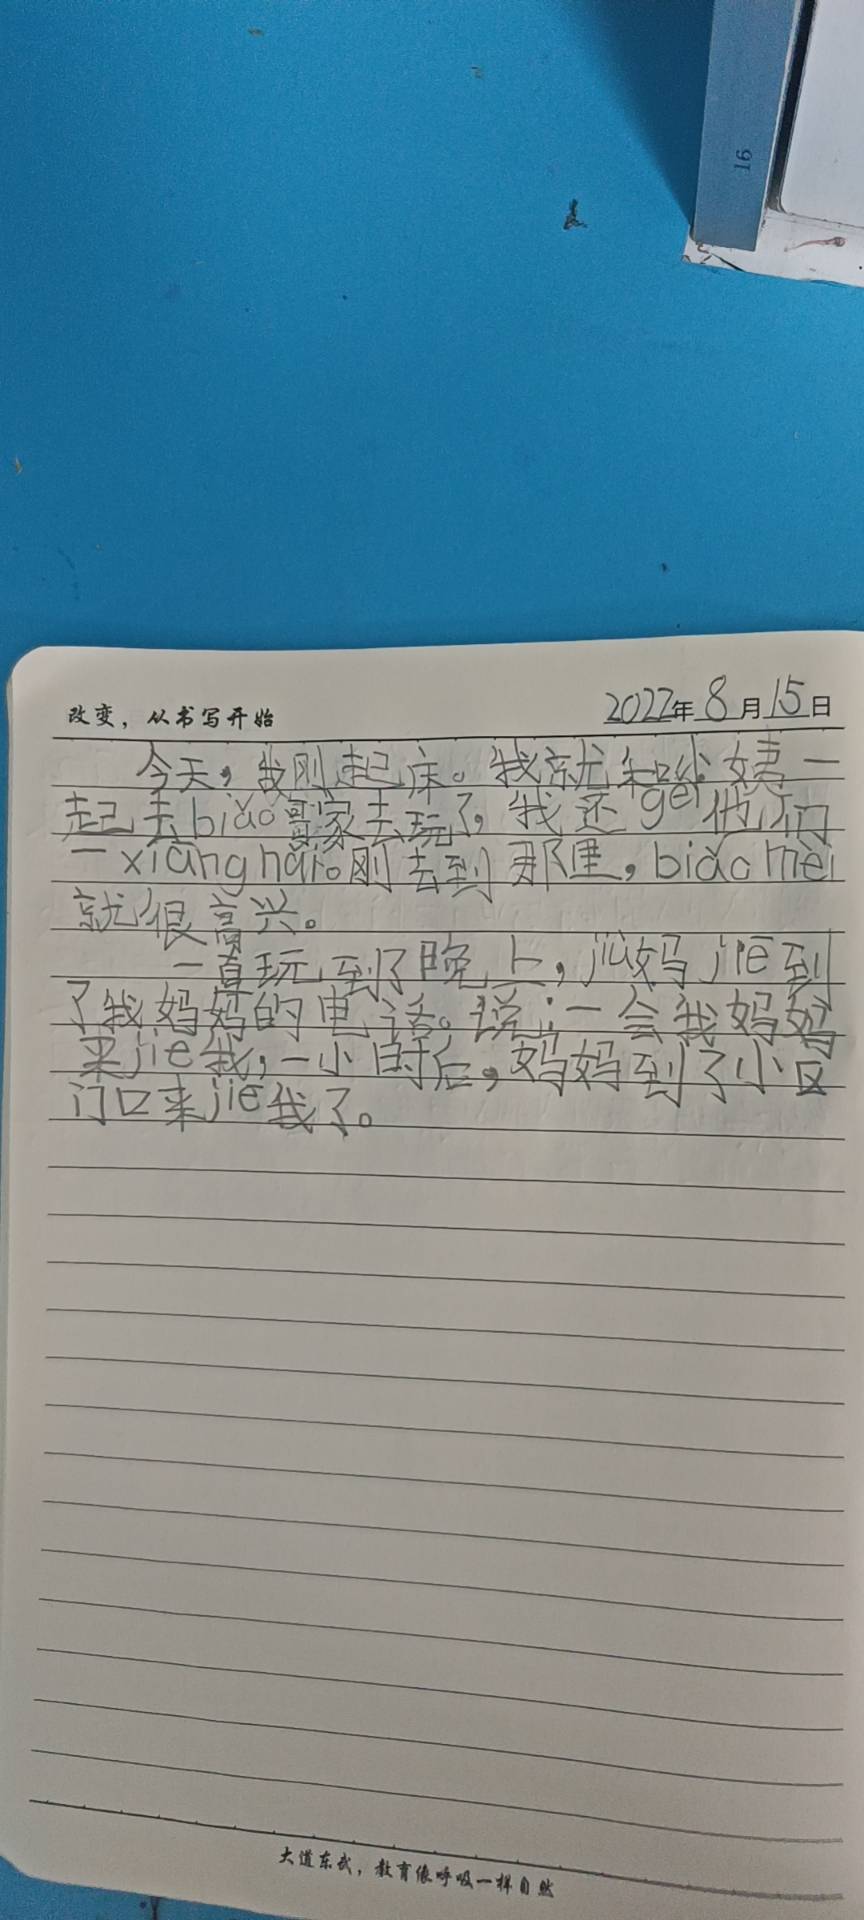 16
改变，从书写开始
2022年8月15日
今天，我刚起床。我就和小姨一
起去biǎo哥家去玩了，我还gěi他们
一xiāng nǎi。刚去到那里，biǎo mèi
就很高兴。
一直玩到了晚上，jiù妈jiē到
了我妈妈的电话。说：一会我妈妈
来jiē我，一小时后，妈妈到了小区
门口来jiē我了。
大道东武，教育像呼吸一样自然